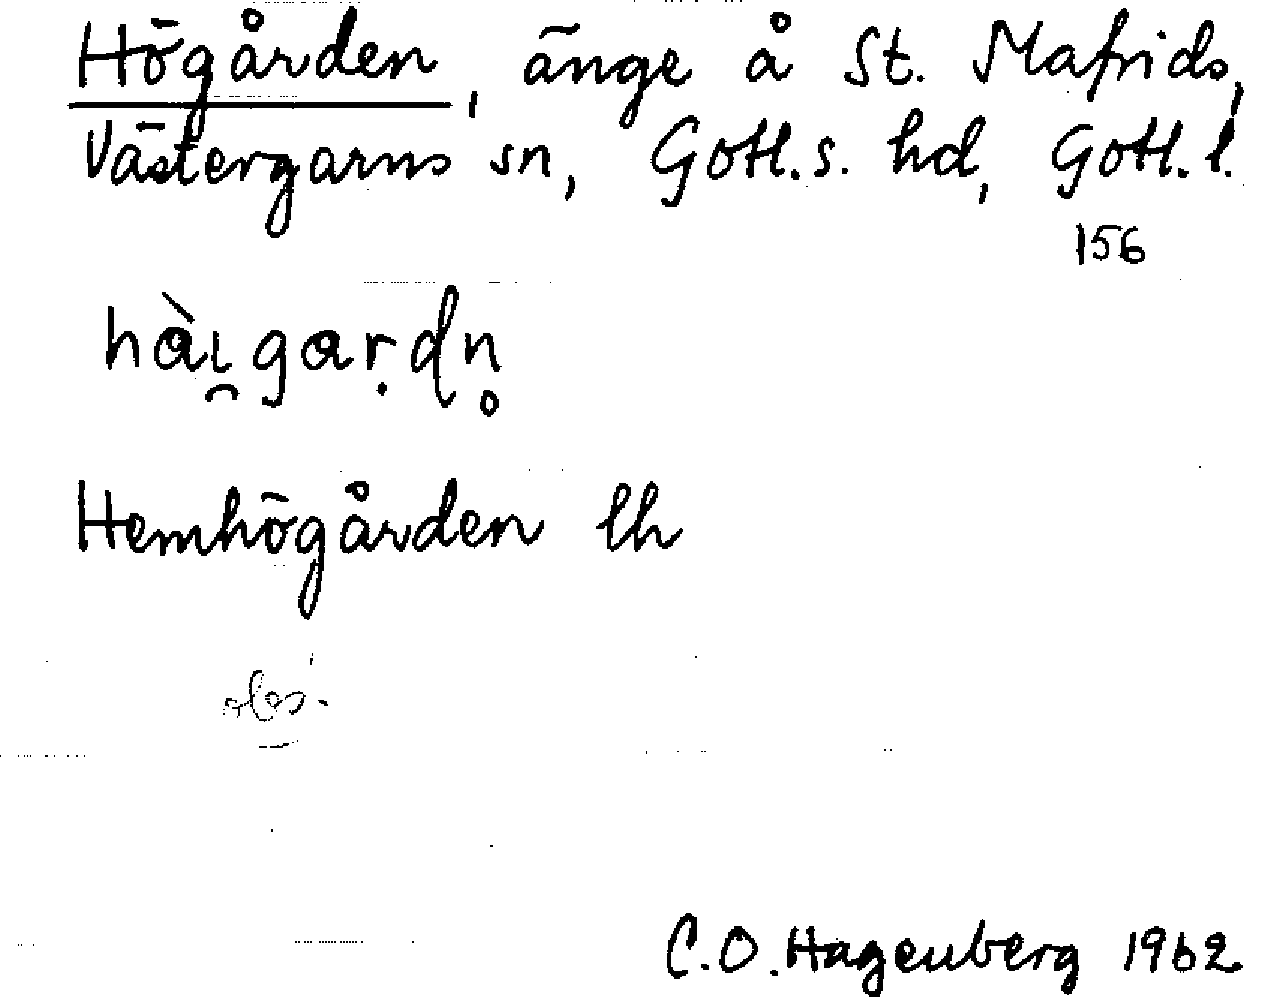 Högården, änge å St. Mafrids,
Västergarns sn, Gotl. s. hd, Gotl. l.
156
hàı̯gaṛdn̥
Hemhögården lh
C.O. Hagenberg 1962